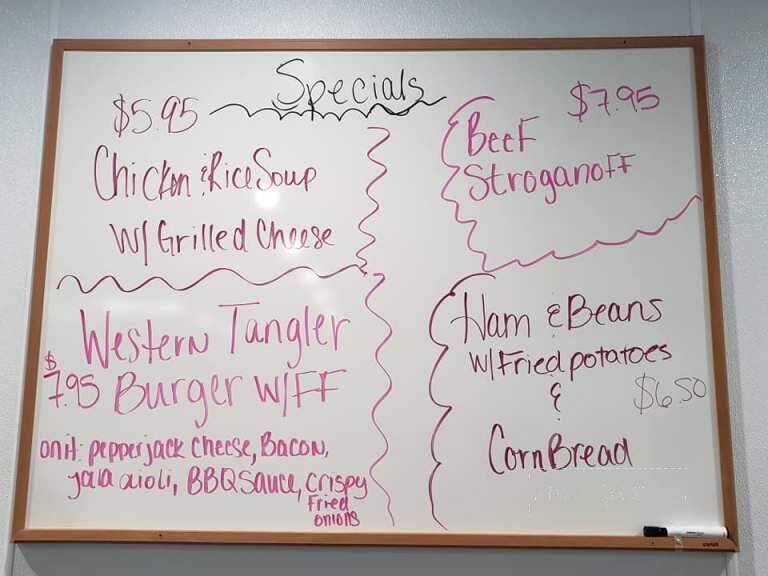 Specials
$5.95
Chicken & Rice Soup
W/ Grilled Cheese
$7.95
Beef
Stroganoff
Western Tangler
$7.95 Burger W/FF
on it: pepperjack cheese, Bacon,
jala aioli, BBQ Sauce, crispy
Fried
onions
Ham & Beans
W/ Fried potatoes
&
$6.50
Corn Bread